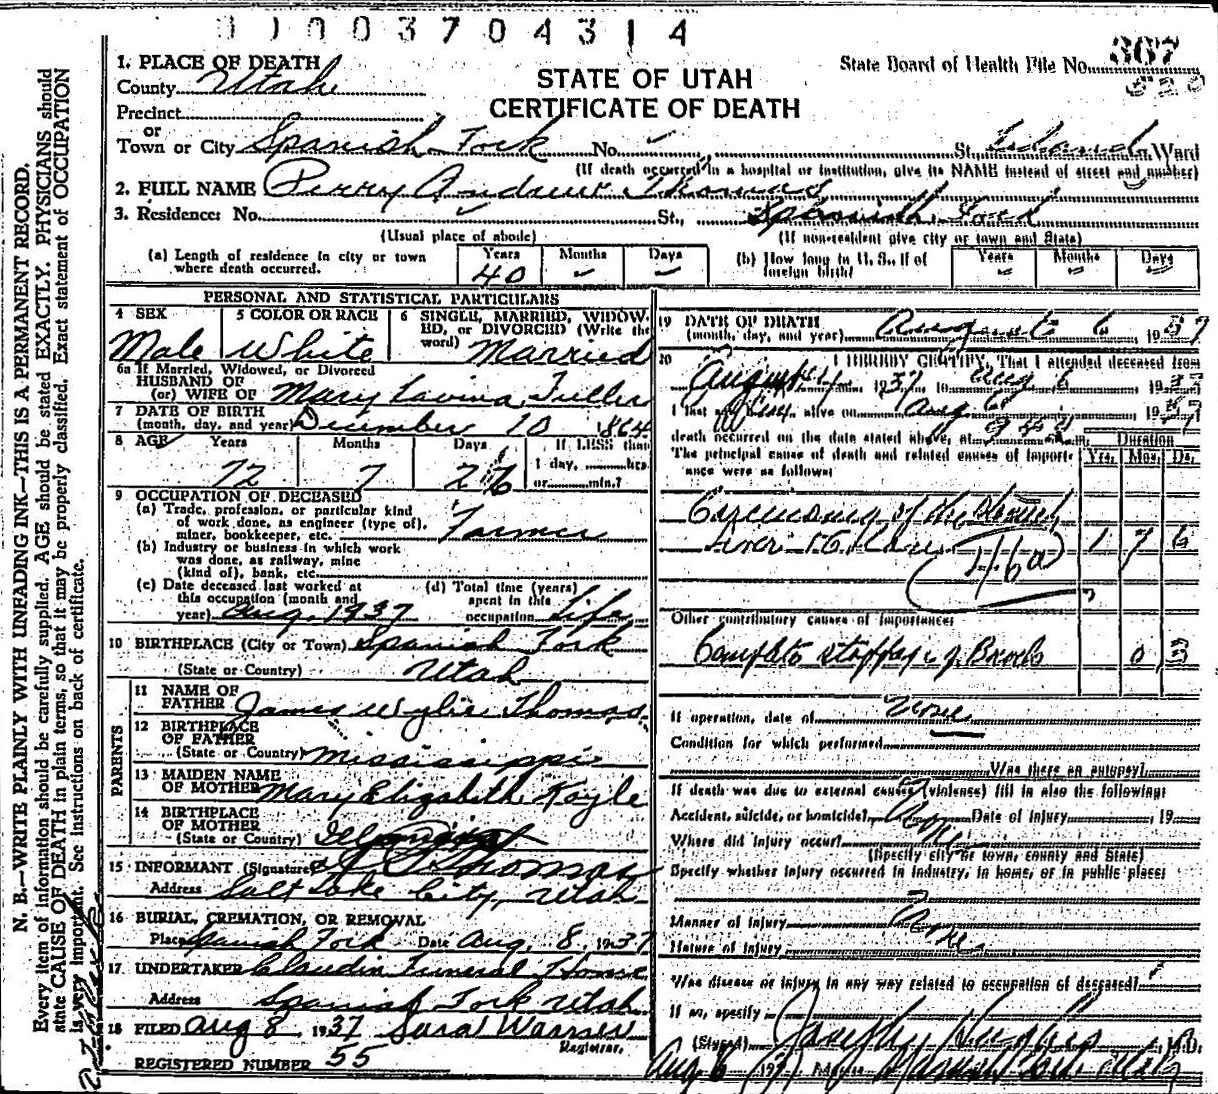 003704314
1. PLACE OF DEATH
County Utah
STATE OF UTAH
CERTIFICATE OF DEATH
State Board of Health File No. 367
Precinct
or
Town or City Spanish Fork No. St., Ward
(If death occurred in a hospital or institution, give its NAME instead of street and number)
2. FULL NAME Perry Andrew Thomas
3. Residence: No. St., Spanish Fork
(Usual place of abode) (If non-resident give city or town and State)
(a) Length of residence in city or town where death occurred. Years 40 Months - Days -
(b) How long in U. S., if of foreign birth? Years Months Days
PERSONAL AND STATISTICAL PARTICULARS
4 SEX Male
5 COLOR OR RACE White
6 SINGLE, MARRIED, WIDOWED, or DIVORCED (Write the word) Married
6a If Married, Widowed, or Divorced
HUSBAND OF
(or) WIFE OF Mary Lavina
7 DATE OF BIRTH
(month, day, and year) December 10 1864
8 AGE Years 72 Months 7 Days 26
If LESS than
1 day, hrs.
or min.?
9 OCCUPATION OF DECEASED
(a) Trade, profession, or particular kind
of work done, as engineer (type of),
miner, bookkeeper, etc. Farmer
(b) Industry or business in which work
was done, as railway, mine
(kind of), bank, etc.
(c) Date deceased last worked at
this occupation (month and
year) Aug. 1937
(d) Total time (years)
spent in this
occupation Life
10 BIRTHPLACE (City or Town) Spanish Fork
(State or Country) Utah
PARENTS
11 NAME OF
FATHER James Wylie Thomas
12 BIRTHPLACE
OF FATHER
(State or Country) Mississippi
13 MAIDEN NAME
OF MOTHER Mary Elizabeth Koyle
14 BIRTHPLACE
OF MOTHER
(State or Country)
15 INFORMANT (Signature) Thomas
Address Salt Lake City, Utah
16 BURIAL, CREMATION, OR REMOVAL
Place Spanish Fork Date Aug. 8, 1937
17 UNDERTAKER Claudin Funeral Home
Address Spanish Fork Utah
18 FILED Aug 8 1937 Sara Warner
Registrar.
REGISTERED NUMBER 55
19 DATE OF DEATH
(month, day, and year) August 6 1937
20 I HEREBY CERTIFY, That I attended deceased from
August 1937 to Aug 6 1937
I last saw alive on Aug 6 1937
death occurred on the date stated above, at m. Duration
The principal cause of death and related causes of importance were as follows: Yrs. Mos. Ds.
Carcinoma of the Stomach
Liver 1 7 6
Other contributory causes of importance:
Complete stoppage of Bowels 0 3
If operation, date of None
Condition for which performed
Was there an autopsy?
If death was due to external causes (violence) fill in also the following:
Accident, suicide, or homicide? Date of Injury 19
Where did injury occur?
(Specify city or town, county and State)
Specify whether injury occurred in industry, in home, or in public place:
Manner of Injury
Nature of Injury
Was disease or injury in any way related to occupation of deceased?
If so, specify
(Signed) Joseph Hughes, M.D.
Aug 6 1937
N. B.—WRITE PLAINLY WITH UNFADING INK—THIS IS A PERMANENT RECORD.
Every item of information should be carefully supplied. AGE should be stated EXACTLY. PHYSICIANS should
state CAUSE OF DEATH in plain terms, so that it may be properly classified. Exact statement of OCCUPATION
is very important. See instructions on back of certificate.